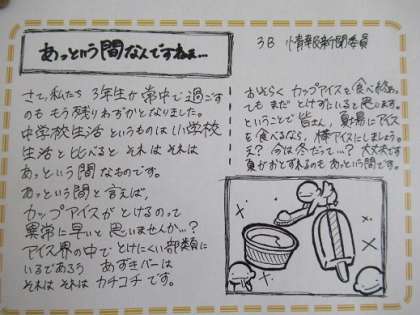 あっという間なんですねぇ…
3B 情報新聞委員
さて、私たち 3年生が常中で過ごす
のも もう残りわずかとなりました。
中学校生活というものは小学校
生活と比べると それは それは
あっという間なものです。
あっという間と言えば、
カップアイスがとけるのって
異常に早いと思いませんか…?
アイス界の中でとけにくい部類に
いるであろう あずきバーは
それは それは カチコチです。
おそらく カップアイスを食べ終わっ
ても まだ とけずにいると思います。
ということで皆さん、夏場にアイス
を食べるなら、棒アイスにしましょう。
え? 今は冬だって…? 大丈夫です
夏がおとずれるのも あっという間です。